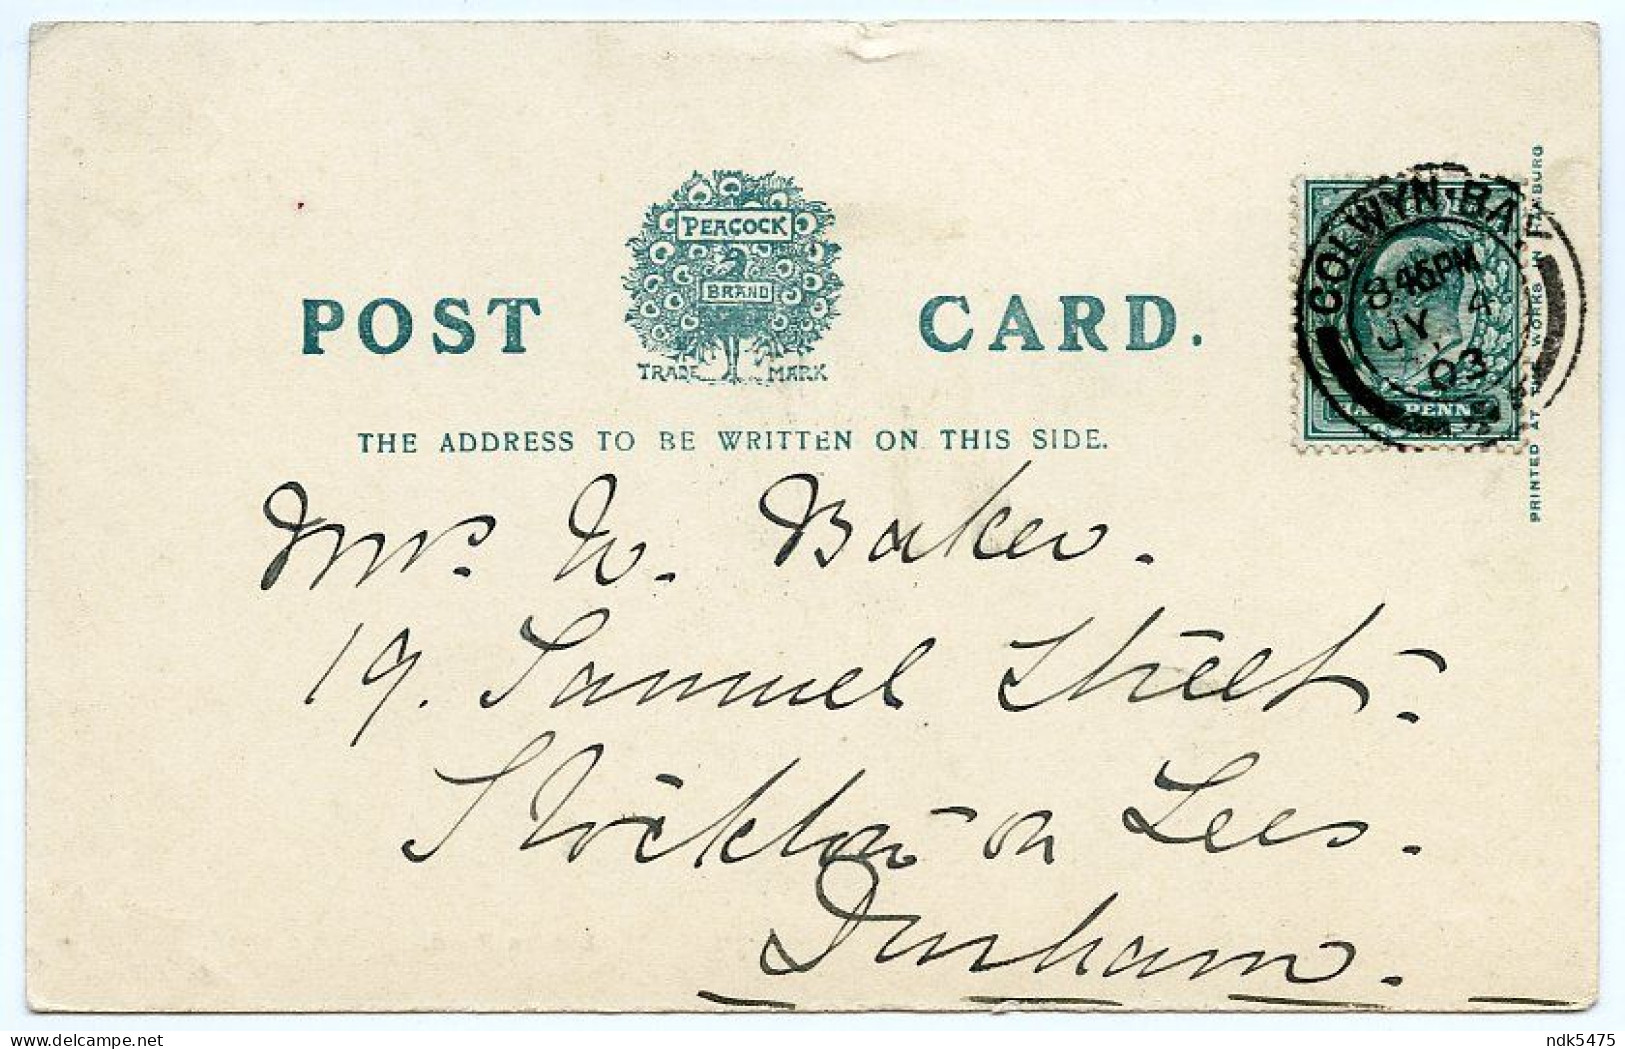 POST CARD.
PEACOCK
BRAND
TRADE MARK
THE ADDRESS TO BE WRITTEN ON THIS SIDE.
COLWYN·BAY
8 45 PM
JY 4
03
HALF PENNY
PRINTED AT THE WORKS IN
Mrs. W. Baker.
19. Samuel Street.
Stockton-on Tees.
Durham.
delcampe.net
ndk5475